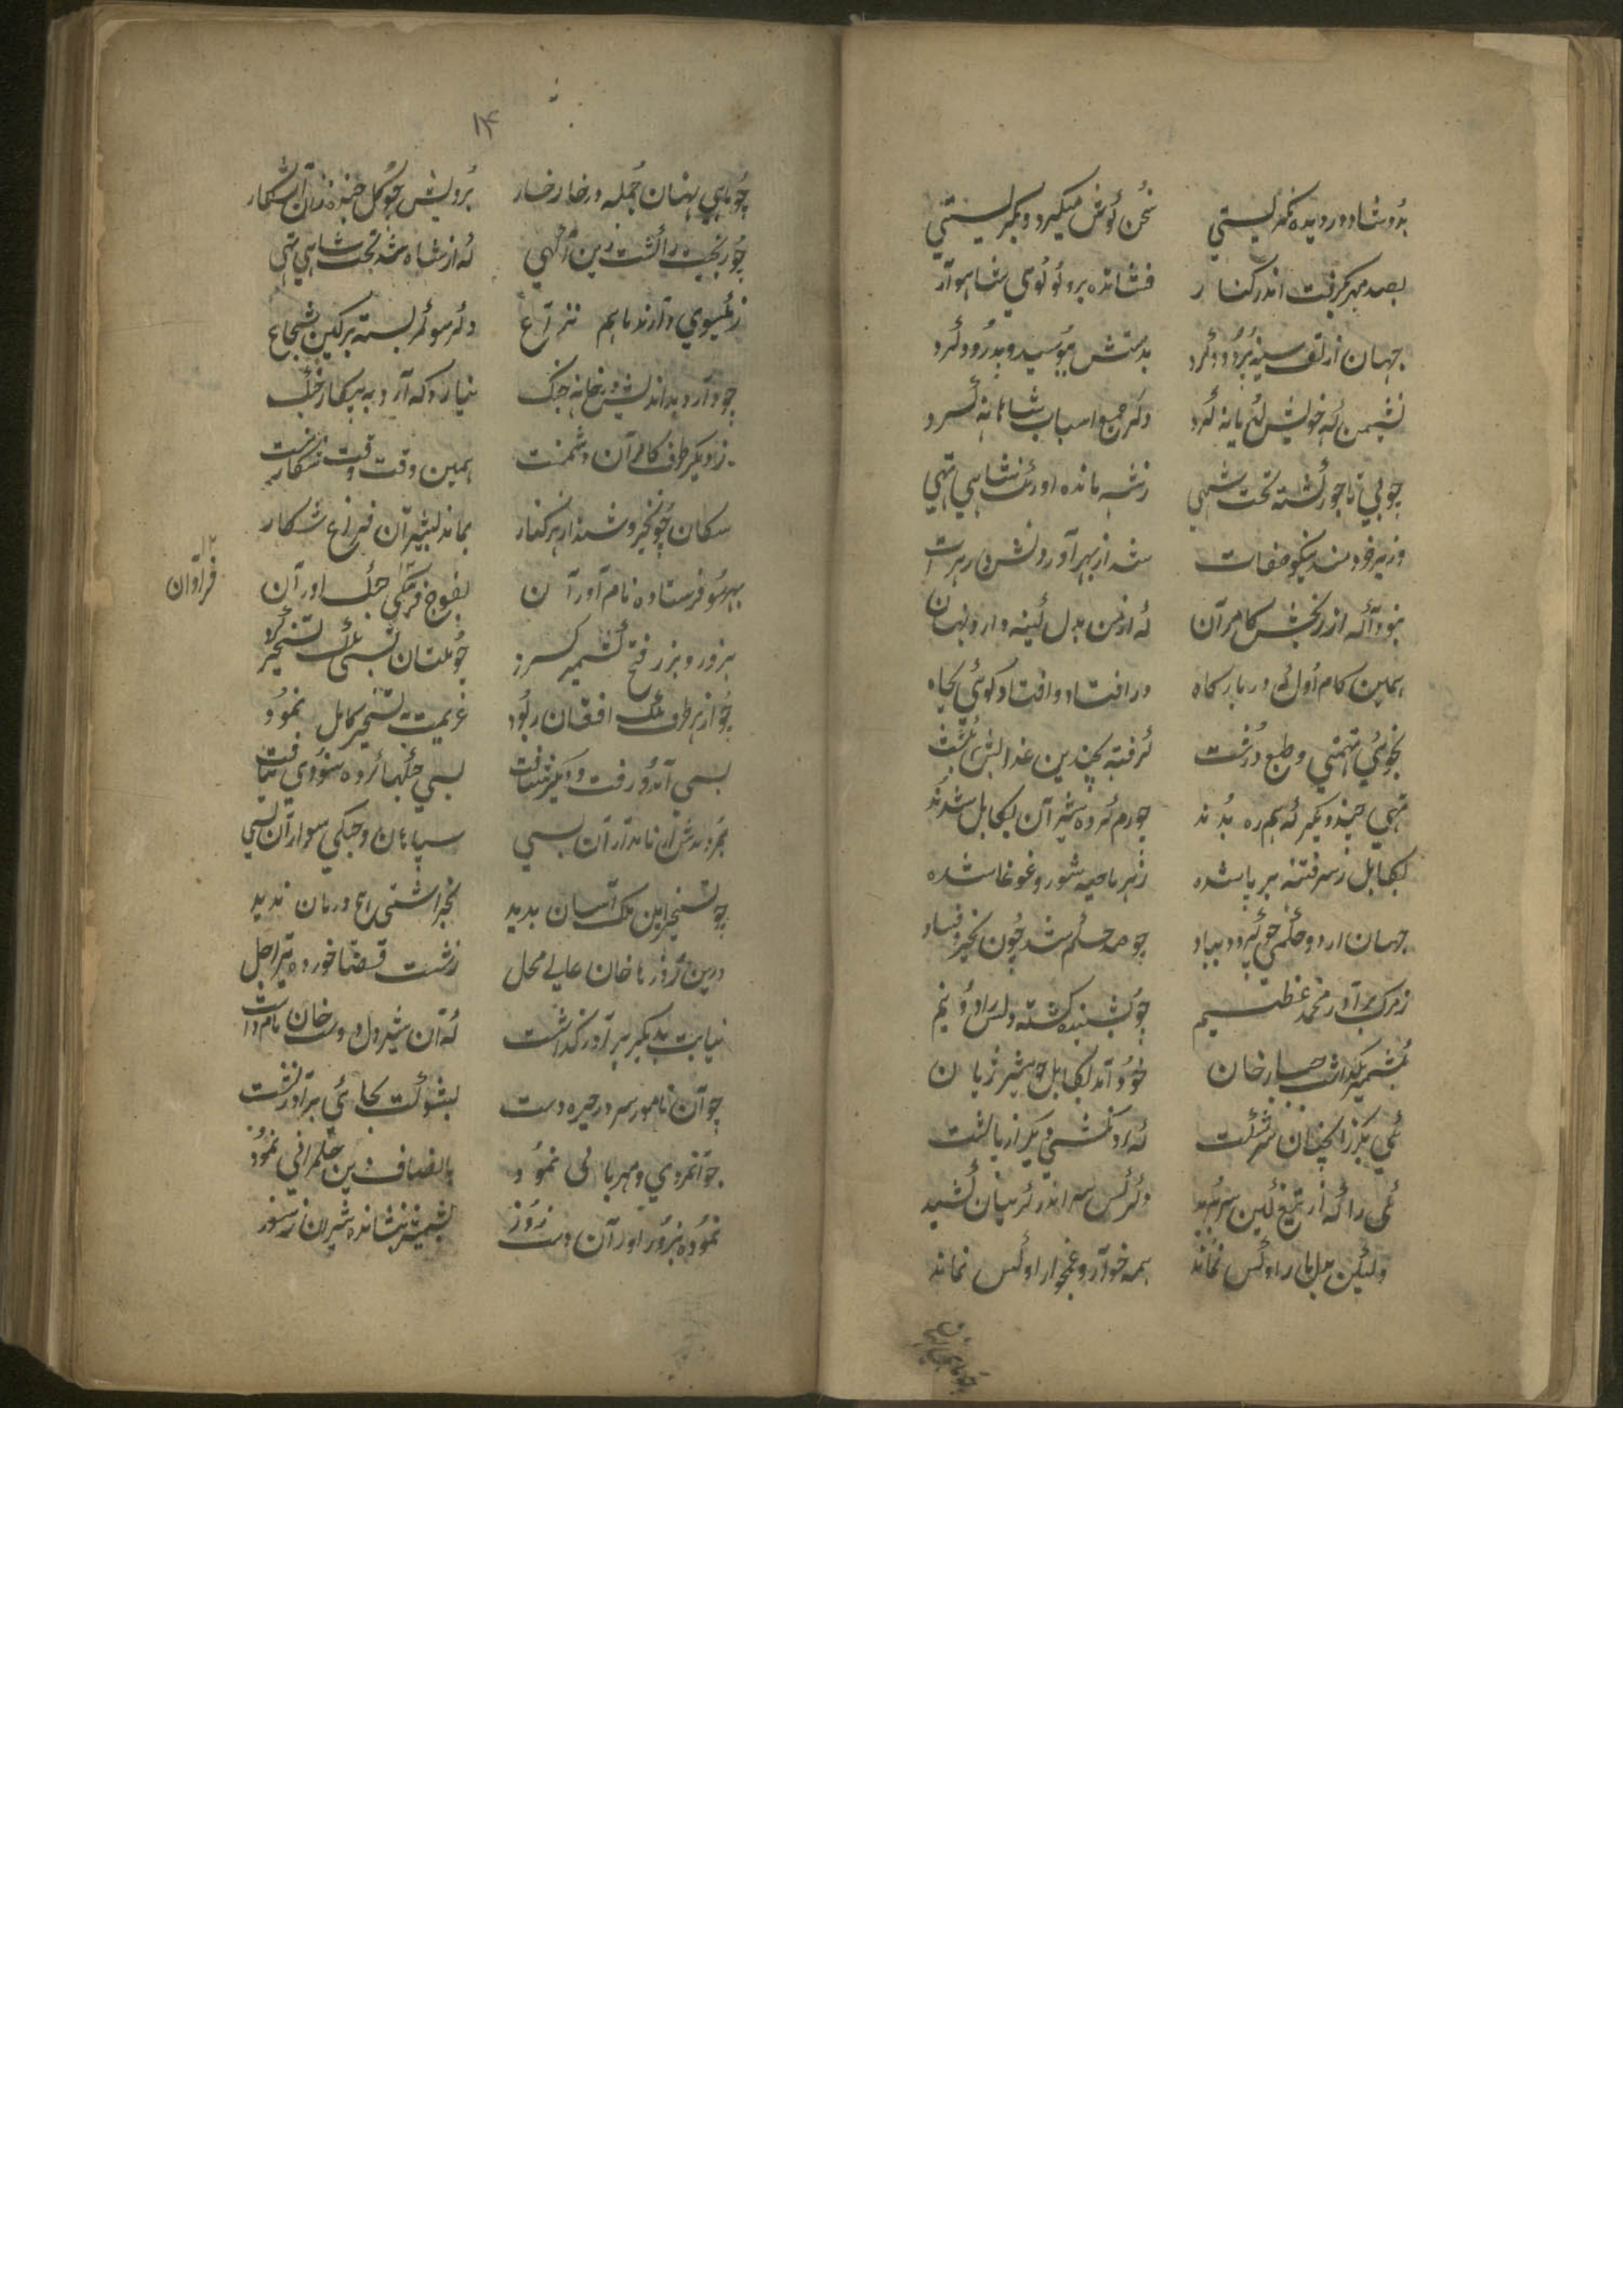 بدو شاد و در دیده نگریستی سخن گوش میکرد و بگریستی
بصد مهر بگرفت اندر کنار فشانده برو لولوی شاهوار
جهان از تف سینه پر دود کرد بدستش ببوسید و بدرود کرد
نشیمن که خویش لودیانه کرد دگر جمع اسباب شاهانه کرد
چو بی تاجور گشته تخت شهی ز شه مانده اورنگ شاهی تهی
وزیر خردمند نیکو صفات شد از بهر آوردنش در هرات
بود آنکه از رنجش کامران که از من بدل کینه دارد نهان
همین کام اول که در بارگاه در افتاد و افتاد کوئی بچاه
بخوئی تهمتنی و طبع درشت گرفته بچندین عذابش بکشت
تهی چند دیگر که همره بدند چو رم کرده شیران بکابل شدند
بکابل ز سر فتنه بر پا شده ز هر ناحیه شور و غوغا شده
جهان از دو حکم جو گیرد بباد چو صد حکم شد چون نخیزد فساد
ز مرگ برادر محمد عظیم چو بشنید گشته دلش را دو نیم
بکشمیر بگذاشت جبار خان خود آمد بکابل چو شیر ژیان
یکی را که از تیغ کین سر برید دگر کس سر اندر گریبان کشید
ولیکن بدل یار او کس نماند همه خوار و غمخوار او کس نماند
۱۴
چو ماهی پنهان جمله در خار خار برویش چو گل خنده زن آشکار
چو رنجیت را گشت زین آگهی که از شاه شد تخت شاهی تهی
ز یکسوی دارند با هم نزاع دگر سو کمر بسته بر کین شجاع
چو دارد بداندیش در خانه جنگ نیارد که آرد به پیکار چنگ
ز دیگر طرف کامران دشمنست همین وقت وقت شکار منست
سگان چون خروشند از هر کنار بماند بشیران فراغ شکار
بهر سو فرستاده نام آوران بفوج فرنگی جنگ آوران
۱۲ فراوان
بزور و بزر فتح کشمیر کرد چو ملتان بسی ملک تسخیر کرد
چو از هر طرف ملک افغان ربود عزیمت به تسخیر کابل نمود
بسی آمد و رفت و دیگر شتافت بسی جنگها کرده سودی نیافت
بمردندش از نامداران بسی سپاهان و جنگی سواران بسی
چو تسخیر این ملک آسان ندید بجز آشتی هیچ درمان ندید
درین روزها خان عالی محل ز شست قضا خورده تیر اجل
نیابت بدیگر برادر گذاشت که آن شیردل دوست خان نام داشت
چو آن نامور سرور چیره دست بشوکت بجای برادر نشست
جوانمردی و مهربانی نمود بانصاف و دین حکمرانی نمود